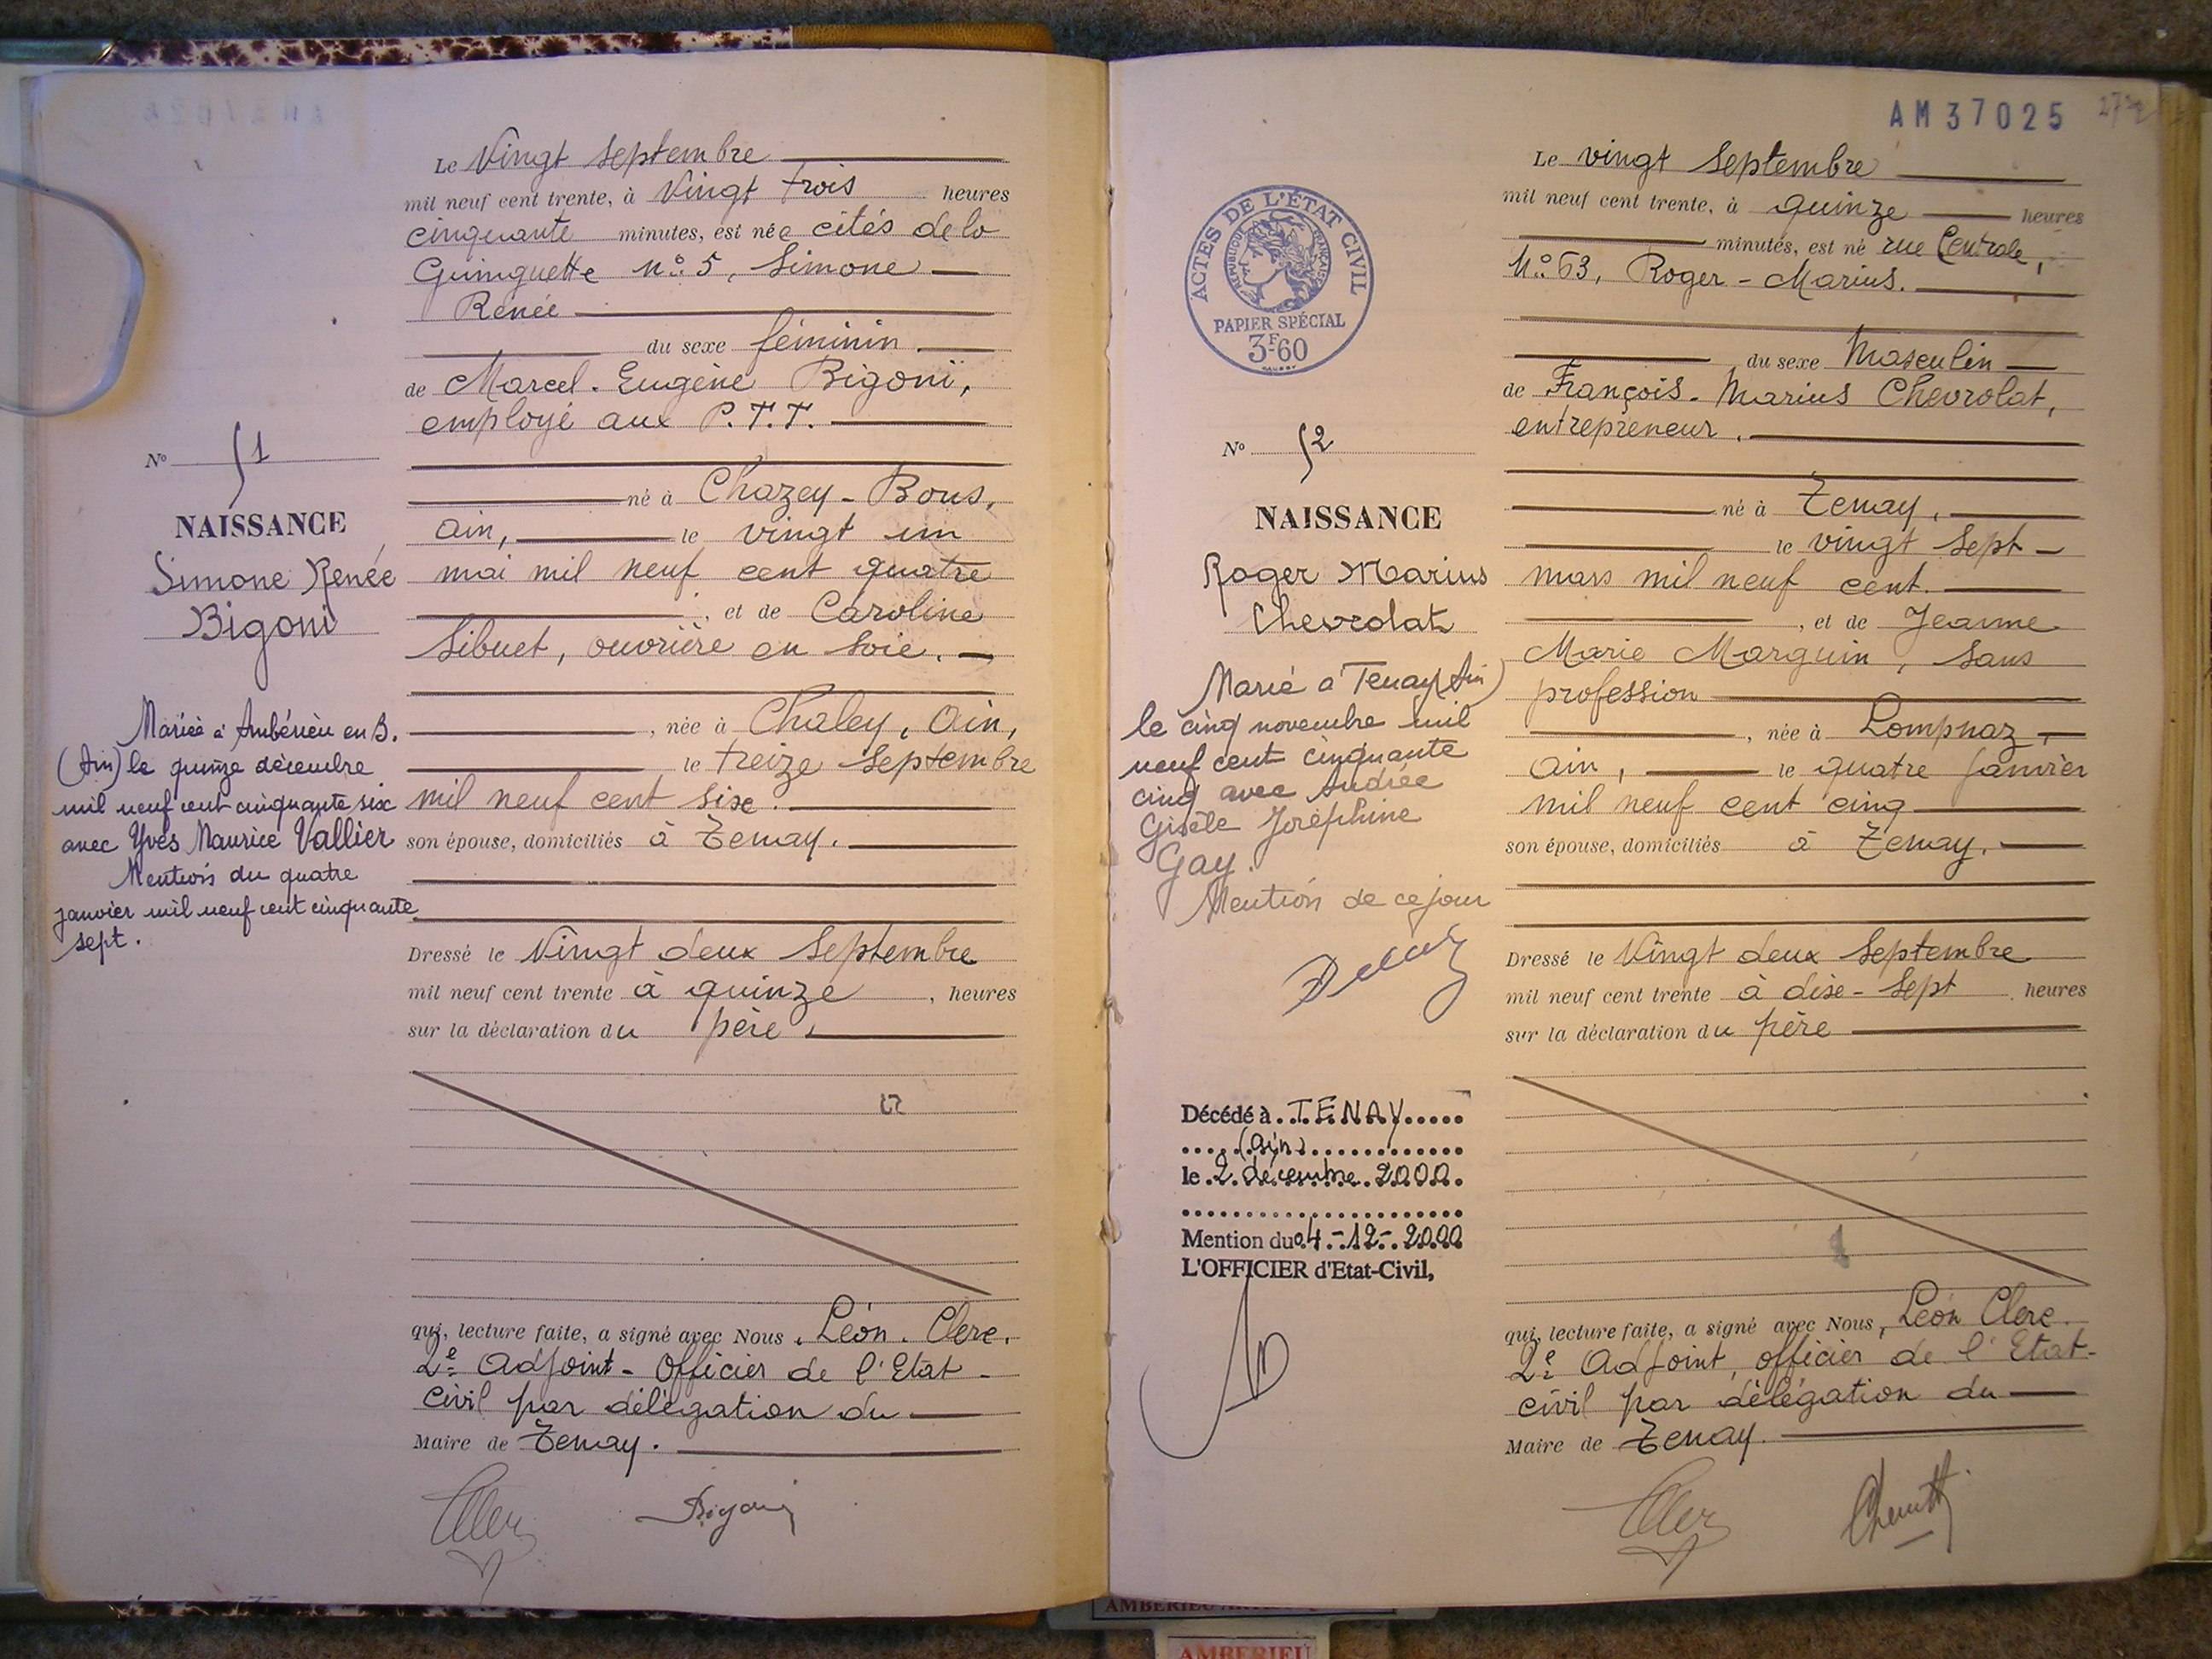 Le Vingt Septembre
mil neuf cent trente, à Vingt trois heures
cinquante minutes, est née cités de la
Guinguette N° 5, Simone
Renée
du sexe féminin
de Marcel-Eugène Bigoni,
employé aux P.T.T.
né à Chazey-Bons,
Ain, le vingt un
mai mil neuf cent quatre
, et de Caroline
Sibuet, ouvrière en soie.
, née à Chaley, Ain,
le treize Septembre
mil neuf cent six.
son épouse, domiciliés à Tenay.
Dressé le Vingt deux Septembre
mil neuf cent trente à quinze , heures
sur la déclaration du père,
qui, lecture faite, a signé avec Nous, Léon Clerc,
2e Adjoint - Officier de l'Etat-
civil par délégation du
Maire de Tenay.
N° 51
NAISSANCE
Simone Renée
Bigoni
Mariée à Ambérieu en B.
(Ain) le quinze décembre
mil neuf cent cinquante six
avec Yves Maurice Vallier
Mention du quatre
janvier mil neuf cent cinquante
sept.
AM37025
ACTES DE L'ÉTAT CIVIL
RÉPUBLIQUE FRANÇAISE
PAPIER SPÉCIAL
3F60
N° 52
NAISSANCE
Roger Marius
Chevrolat
Marié à Tenay (Ain)
le cinq novembre mil
neuf cent cinquante
cinq avec Andrée
Gisèle Joséphine
Gay.
Mention de ce jour
Décédé à TENAY
(Ain)
le 2 décembre 2000
Mention du 04-12-2000
L'OFFICIER d'Etat-Civil,
Le vingt Septembre
mil neuf cent trente, à quinze heures
minutes, est né rue Centrale,
N° 63, Roger-Marius.
du sexe Masculin
de François-Marius Chevrolat,
entrepreneur.
né à Tenay,
le vingt Sept
mars mil neuf cent.
, et de Jeanne
Marie Marguin, sans
profession
, née à Lompnaz,
Ain, le quatre janvier
mil neuf cent cinq
son épouse, domiciliés à Tenay.
Dressé le Vingt deux Septembre
mil neuf cent trente à dix-Sept heures
sur la déclaration du père
qui, lecture faite, a signé avec Nous, Léon Clerc.
2e Adjoint, officier de l'Etat-
civil par délégation du
Maire de Tenay.
AMBERIEU